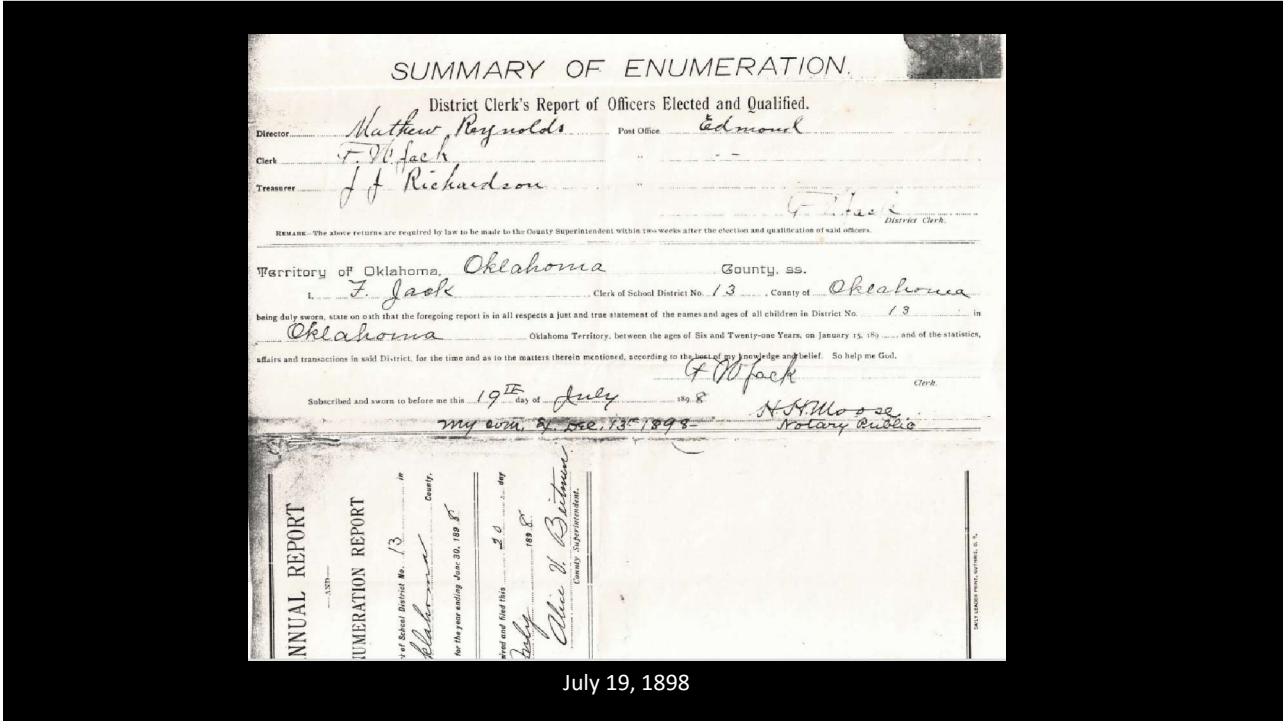 SUMMARY OF ENUMERATION.
District Clerk's Report of Officers Elected and Qualified.
Director Mathew Reynolds Post Office Edmond
Clerk F. W. Jack " - -
Treasurer J J Richardson "
Jack
District Clerk.
REMARK—The above returns are required by law to be made to the County Superintendent within two weeks after the election and qualification of said officers.
Territory of Oklahoma, Oklahoma County, ss.
I, F. Jack Clerk of School District No. 13, County of Oklahoma
being duly sworn, state on oath that the foregoing report is in all respects a just and true statement of the names and ages of all children in District No. 13 in
Oklahoma Oklahoma Territory, between the ages of Six and Twenty-one Years, on January 15, 189 and of the statistics,
affairs and transactions in said District, for the time and as to the matters therein mentioned, according to the best of my knowledge and belief. So help me God.
F W Jack
Clerk.
Subscribed and sworn to before me this 19TH day of July 1898
H.H. Moose
my com. Dec. 13th 1898- Notary Public
NNUAL REPORT
—AND—
UMERATION REPORT
of School District No. 13 in
klahoma County.
for the year ending June 30, 1898
ived and filed this 20 day
July 1898
Alice V.
County Superintendent.
DAILY LEADER PRINT, GUTHRIE, O. T.
July 19, 1898